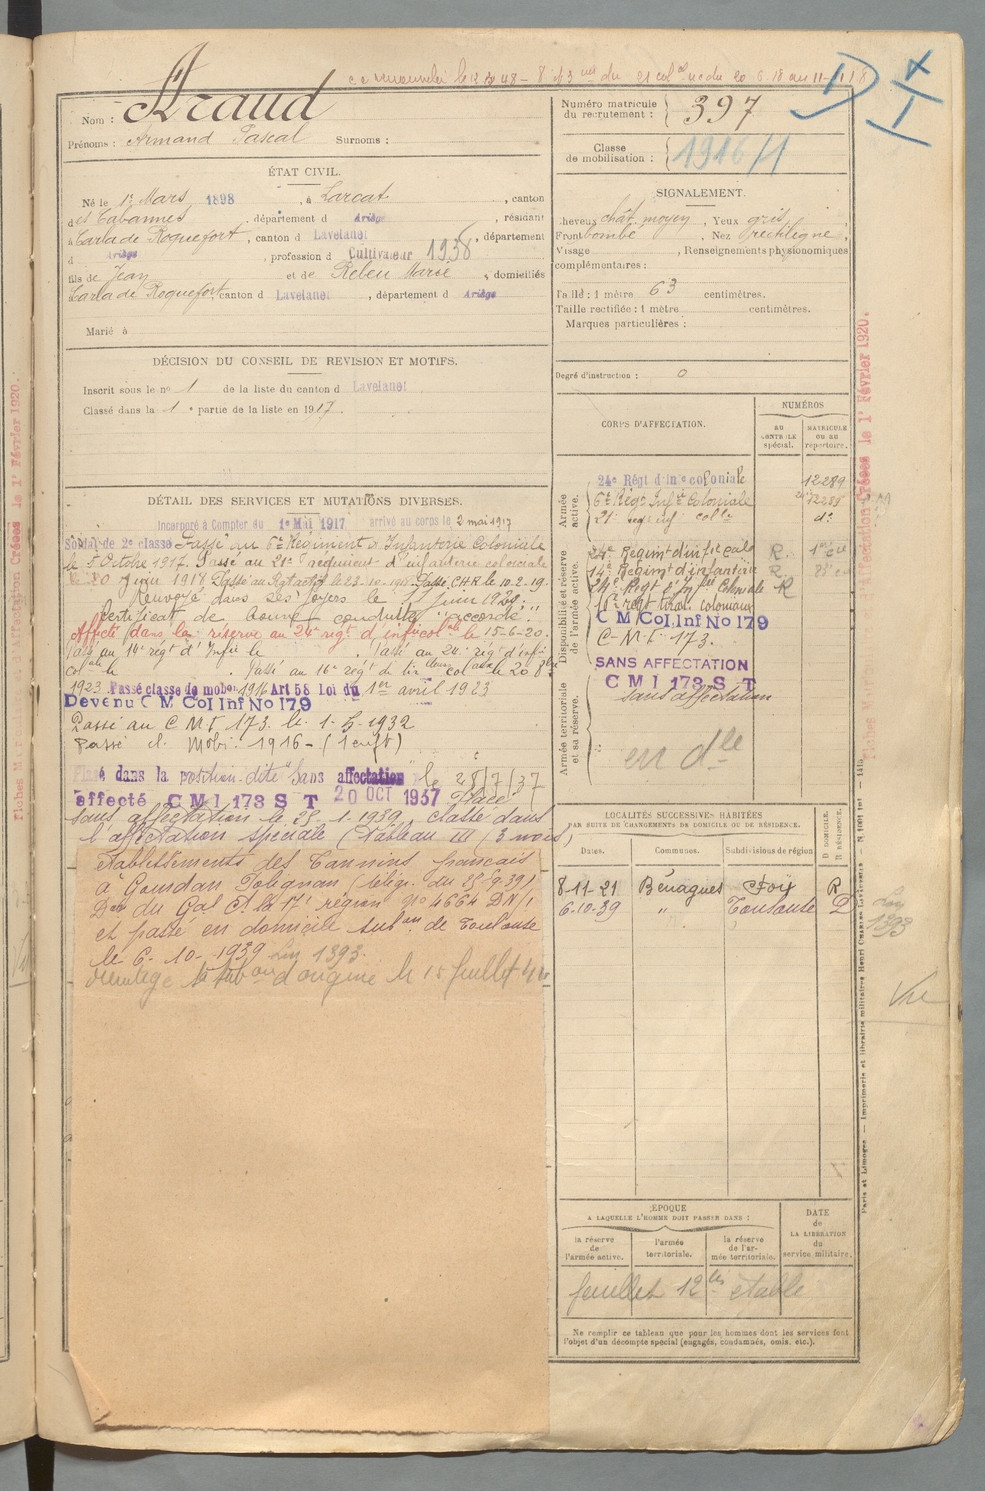 Nom : Araud
Prénoms : Armand Pascal Surnoms :
ÉTAT CIVIL.
Né le 1er Mars 1898, à Larcat, canton
des Cabannes, département d Ariège, résidant
à Carla de Roquefort, canton d Lavelanet, département
d Ariège, profession d Cultivateur 1936
fils de Jean et de Marie, domiciliés
à Carla de Roquefort canton d Lavelanet, département d Ariège
Marié à
DÉCISION DU CONSEIL DE REVISION ET MOTIFS.
Inscrit sous le no 1 de la liste du canton d Lavelanet
Classé dans la 1e partie de la liste en 1917.
DÉTAIL DES SERVICES ET MUTATIONS DIVERSES.
Incorporé à Compter du 1er Mai 1917 arrivé au corps le 2 mai 1917
Soldat de 2e classe Passé au 6e Régiment d'Infanterie Coloniale
le 5 Octobre 1917. Passé au 21e Régiment d'infanterie coloniale
le 20 Juin 1918 Passé CHR le 10-2-19.
Renvoyé dans ses foyers le Juin 1920.
Certificat de bonne conduite "accordé"
Affecté dans la réserve au 24e régt d'infie colale le 15-6-20.
Passé au 14e régt d'Infie le . Passé au 24e régt d'infie
colale le . Passé au 16e régt de tirailleurs colaux le 20 8bre
1923. Passé classe de mobon 1916 Art 58 loi du 1er avril 1923
Devenu C M Col Inf No 179
Passé au C M I. 173 le 1-5-1932
Passé cl. Mobi. 1916 - (1 enft)
Placé dans la position dite "Sans affectation" le 28/7/37
affecté C M I 173 S T 20 OCT 1937 Placé
sans affectation le 25.1.1939. classé dans
l'affectation spéciale (Tableau III (3 mois)
Etablissements des Tannins français
à Gourdan Polignan (télégr. du 25-9-39)
Don du Gal Ct la 17e région No 4664 DN/1
et passé en domicile subon de Toulouse
le 6-10-1939 Lin 1393.
subon d'origine le 15 juillet
Numéro matricule du recrutement : 397
Classe de mobilisation : 1916/1
SIGNALEMENT.
Cheveux chât. moyen, Yeux gris
Front bombé, Nez rectiligne,
Visage , Renseignements physionomiques
complémentaires :
Taille : 1 mètre 63 centimètres.
Taille rectifiée : 1 mètre centimètres.
Marques particulières :
Degré d'instruction : 0
CORPS D'AFFECTATION.
NUMÉROS
AU CONTRÔLE spécial.
MATRICULE OU AU répertoire.
Armée active.
24e Régt d'infie coloniale 12289
6e Rég. Infie Coloniale 12289
21e reg inf colle do
Disponibilité et réserve de l'armée active.
24e Regimt d'infie cale R.
14e Regimt d'infanterie R.
24e Regt d'Infie Coloniale R
16e regt tirail. coloniaux
C M Col Inf No 179
C-M-I- 173.
SANS AFFECTATION
C M I 173 S T
sans affectation
Armée territoriale et sa réserve.
en dle
LOCALITÉS SUCCESSIVES HABITÉES
PAR SUITE DE CHANGEMENTS DE DOMICILE OU DE RÉSIDENCE.
Dates. Communes. Subdivisions de région. D DOMICILE. R RÉSIDENCE.
8-11-21 Bénagues Foix R
6-10-39 " Toulouse D
ÉPOQUE
A LAQUELLE L'HOMME DOIT PASSER DANS :
la réserve de l'armée active.
l'armée territoriale.
la réserve de l'armée territoriale.
DATE de LA LIBÉRATION du service militaire.
feuillet 12 bis établi
Ne remplir ce tableau que pour les hommes dont les services font
l'objet d'un décompte spécial (engagés, condamnés, omis, etc.).
Paris et Limoges. — Imprimerie et librairie militaires Henri CHARLES-LAVAUZELLE
Lin 1393
Vu